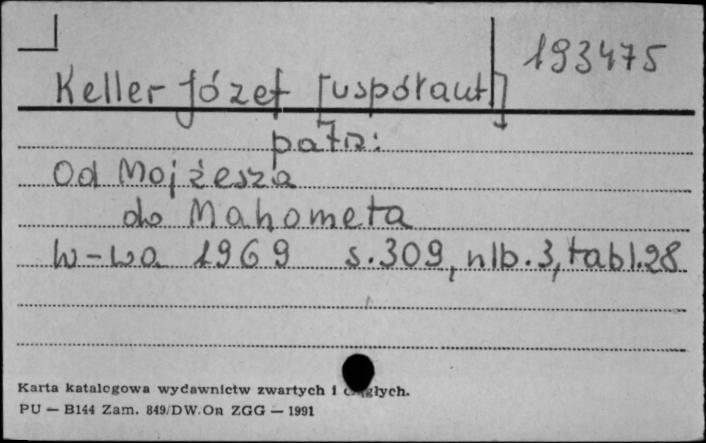 193475
Keller Józef [współaut]
patrz:
Od Mojżesza
do Mahometa
W-wa 1969 s.309, nlb.3, tabl.28
Karta katalogowa wydawnictw zwartych i ciągłych.
PU — B144 Zam. 849/DW.On ZGG — 1991